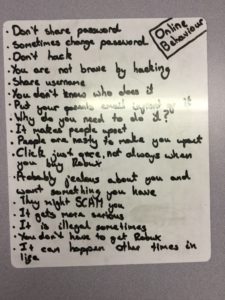 Online
Behaviour
• Don't share password
• Sometimes change password
• Don't hack
• You are not brave by hacking
• Share username
• You don't know who does it
Put your parents email
• Why do you need to do it?
• It makes people upset
• People are nasty to make you upset
• Click just once, not always when
you buy Robux
• Probably jealous about you and
want something you have
• They might SCAM you
• It gets more serious
• It is illegal sometimes
• You don't have to get Robux
• It can happen other times in
life